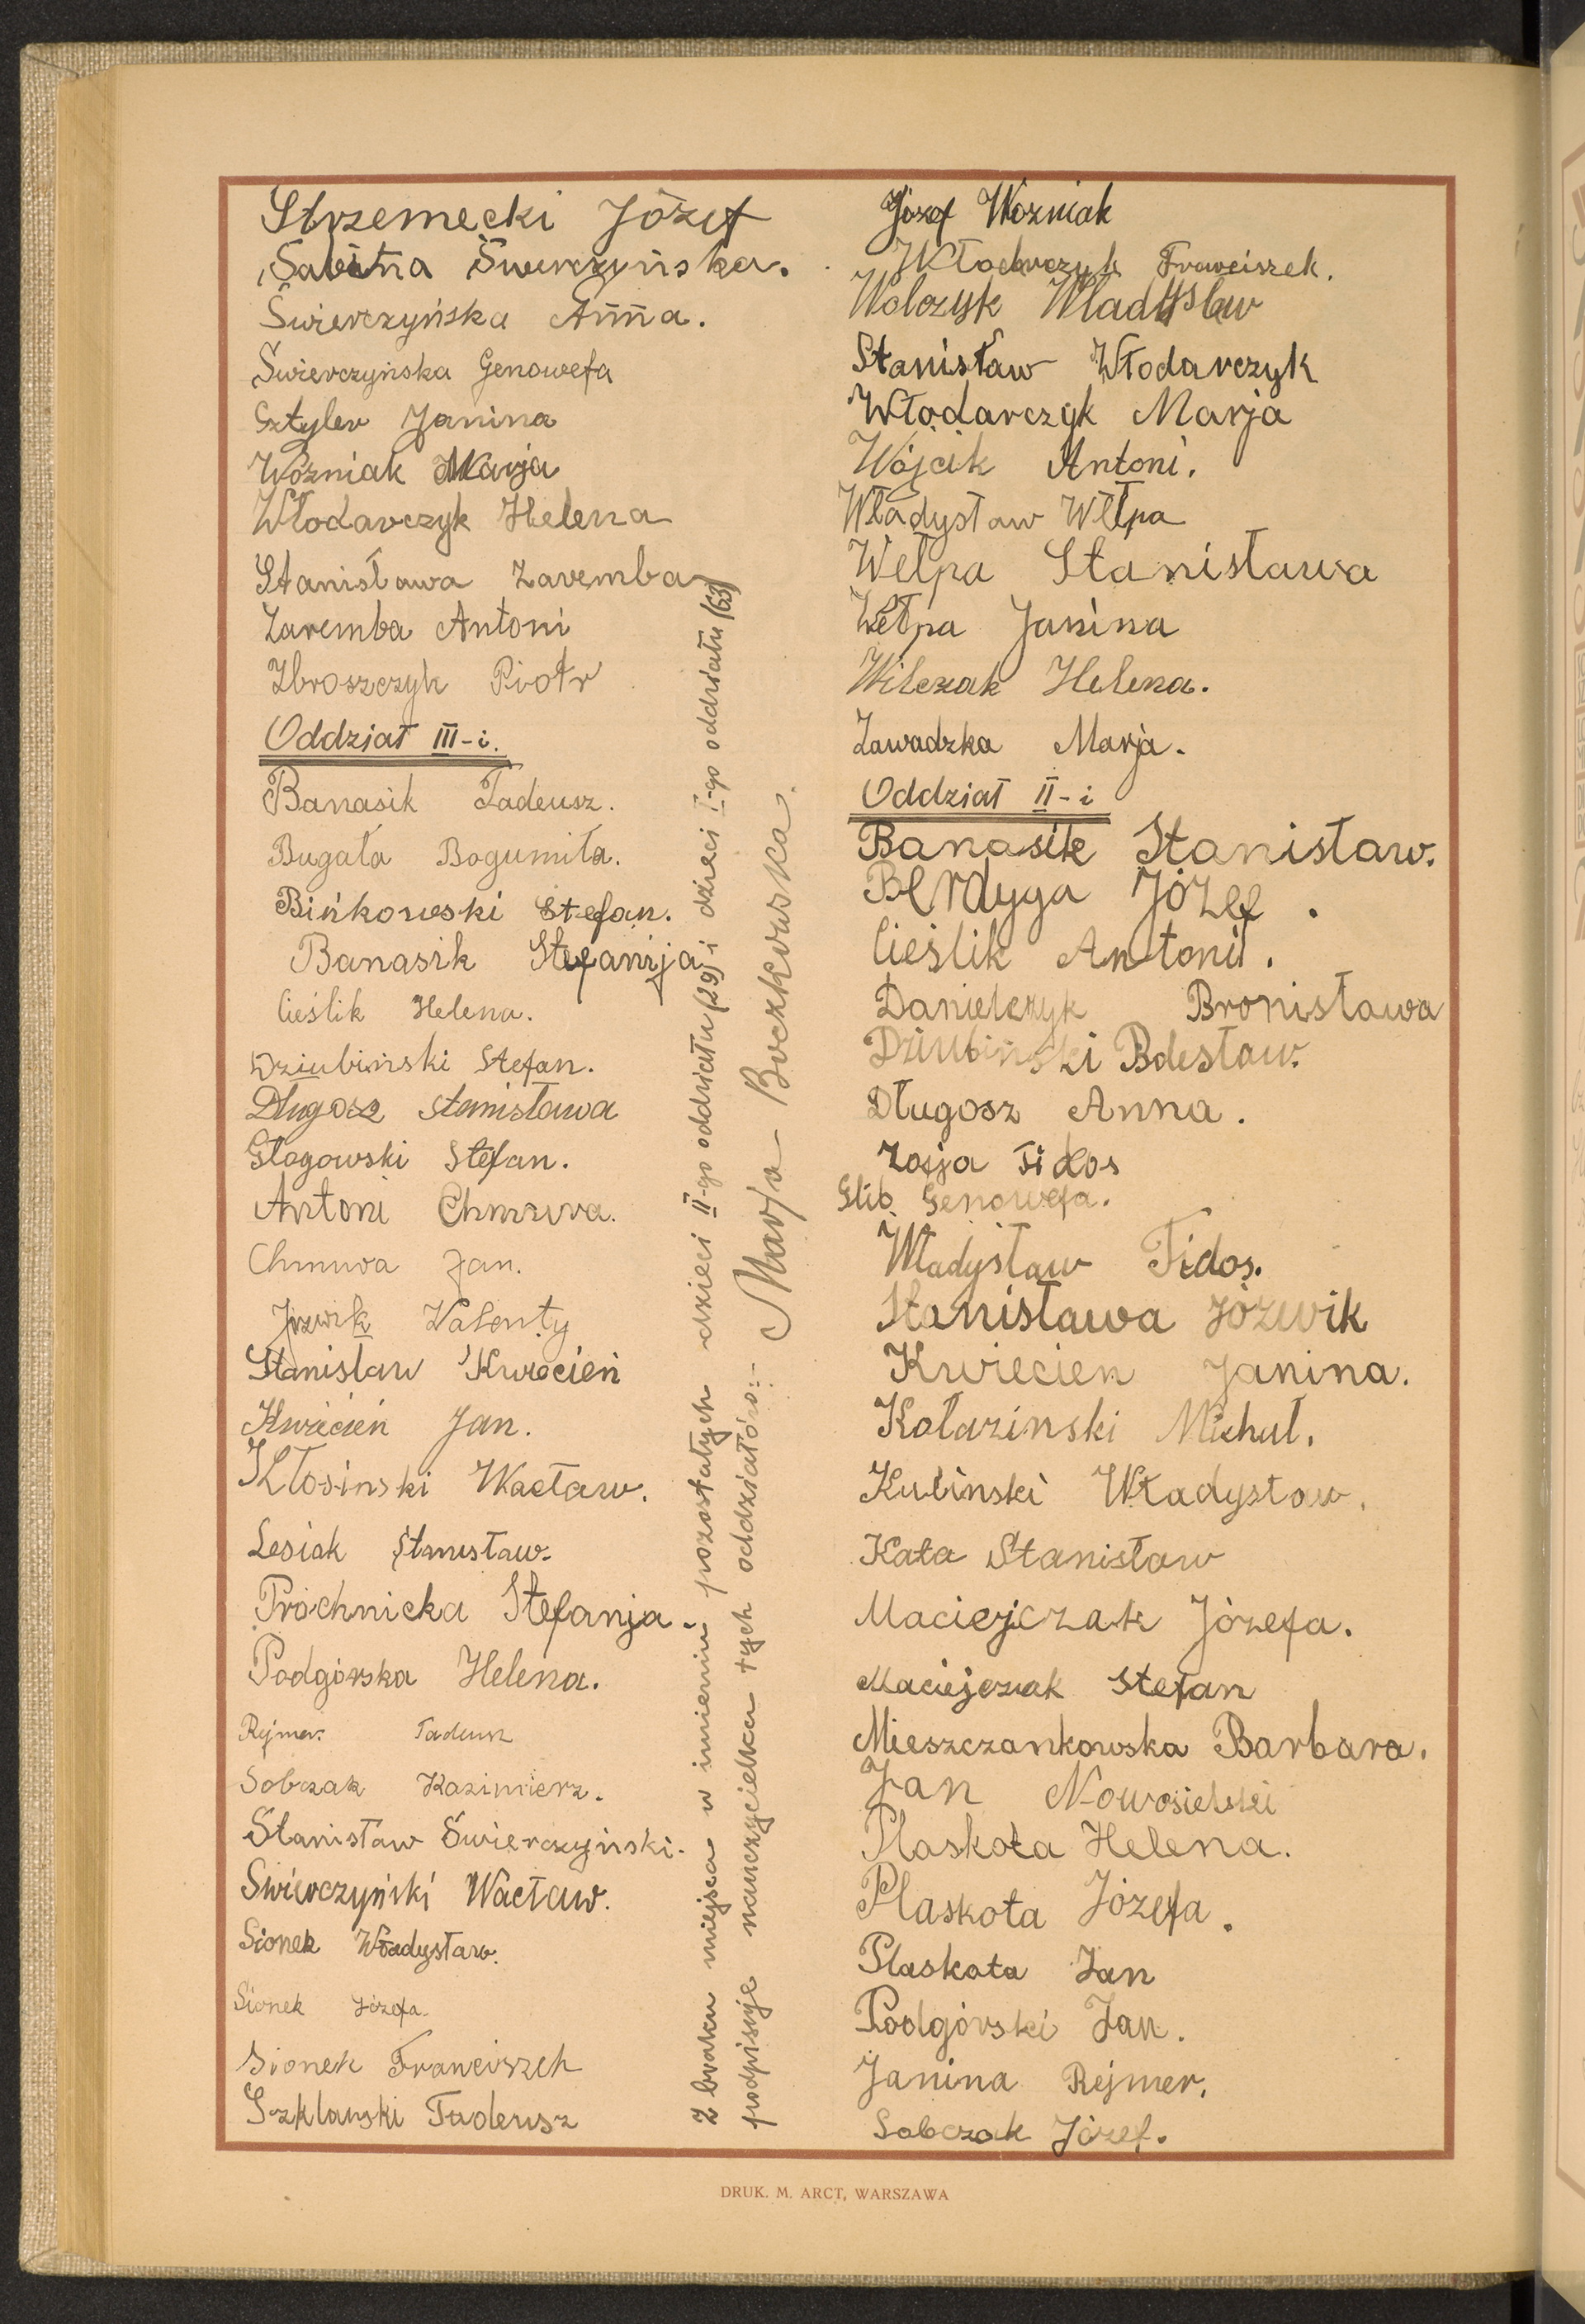 Strzemecki Józef
Sabina Świerczyńska.
Świerczyńska Anna.
Świerczyńska Genowefa
Sztyler Janina
Woźniak Marja
Włodarczyk Helena
Stanisława Zaremba
Zaremba Antoni
Zbroszczyk Piotr
Oddział III-i.
Banasik Tadeusz.
Bugała Bogumiła.
Bińkowski Stefan.
Banasik Stefanija
Cieślik Helena.
Dziubiński Stefan.
Długosz Stanisława
Głogowski Stefan.
Antoni Chmura.
Chmura Jan.
Jzwik Walenty
Stanisław Kwiecień
Kwiecień Jan.
Kłosinski Wacław.
Lesiak Stanisław.
Próchnicka Stefanja.
Podgórska Helena.
Rejmer Tadeusz
Sobczak Kazimierz.
Stanisław Świerczyński.
Swierczyński Wacław.
Sionek Władysław.
Sionek Józefa.
Sionek Franciszek
Szklarski Tadeusz
Z braku miejsca w imieniu pozostałych dzieci II-go oddziału (29) i dzieci I-go oddziału (63)
podpisuje nauczycielka tych oddziałów:- Marja Boczkowska.
Józef Wozniak
Włodarczyk Franciszek.
Wolczyk Władysław
Stanisław Włodarczyk
Włodarczyk Marja
Wójcik Antoni.
Władysław Wełpa
Wełpa Stanisława
Wełpa Janina
Wilczak Helena.
Zawadzka Marja.
Oddział II-i
Banasik Stanisław.
Berdyga Józef.
Cieślik Antoni.
Danielczyk Bronisława
Dziubiński Bolesław.
Długosz Anna.
Zosja Fidos
Glib Genowefa.
Władysław Fidos.
Stanisława Józwik
Kwiecien Janina.
Kołazinski Michał.
Kubinski Władysław.
Kata Stanisław
Maciejczak Józefa.
Maciejczak Stefan
Mieszczankowska Barbara.
Jan Nowosielski
Płaskota Helena.
Płaskota Józefa.
Płaskota Jan
Podgórski Jan.
Janina Rejmer.
Sobczak Józef.
DRUK. M. ARCT, WARSZAWA